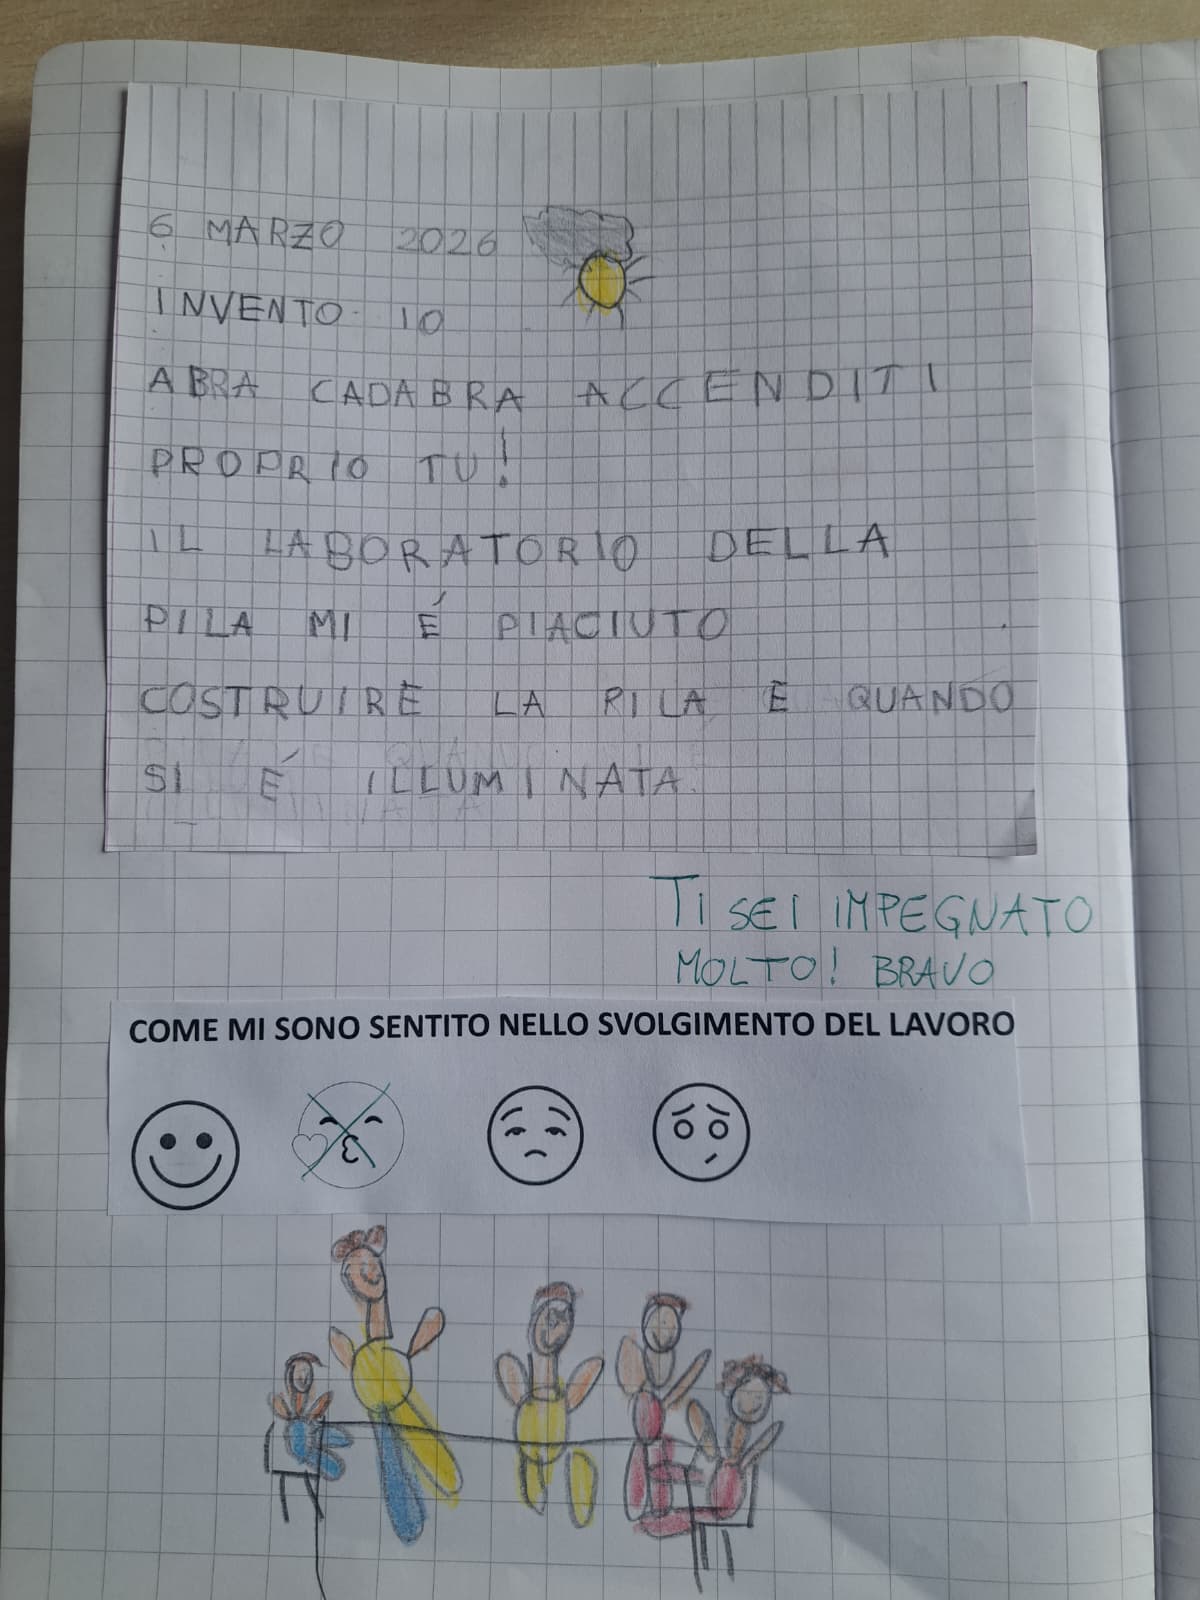 6 MARZO 2026
INVENTO IO
ABRA CADABRA ACCENDITI
PROPRIO TU!
IL LABORATORIO DELLA
PILA MI É PIACIUTO
COSTRUIRE LA PILA E QUANDO
SI É ILLUMINATA.
TI SEI IMPEGNATO
MOLTO! BRAVO
COME MI SONO SENTITO NELLO SVOLGIMENTO DEL LAVORO